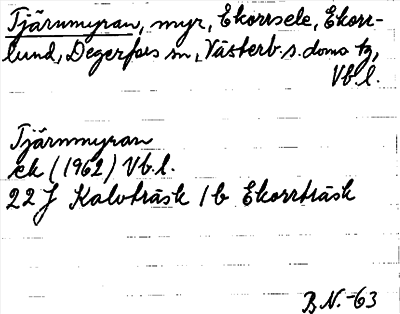 Tjärnmyran, myr, Ekorrsele, Ekorr-
lund, Degerfors sn, Västerb. s. doms tg,
Vb l.
Tjärnmyran
ek (1962) Vb. l.
22 J Kalvträsk 1 b Ekorrträsk
B.N. -63